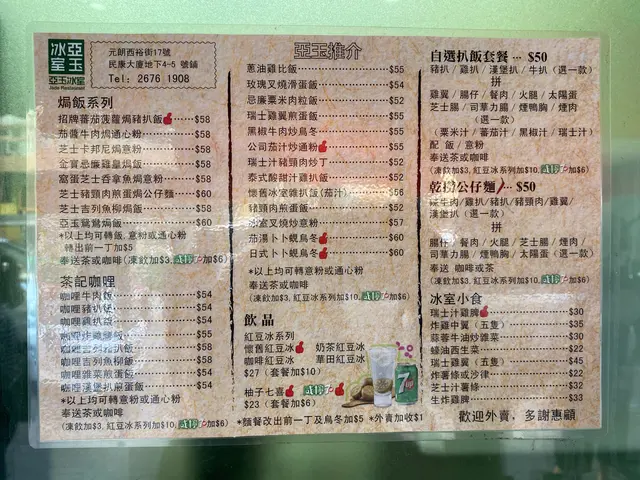 亞玉冰室
亞玉冰室
元朗西裕街17號
民康大廈地下4-5 號鋪
Tel: 2676 1908
焗飯系列
招牌蕃茄菠蘿焗豬扒飯 $58
茄醬牛肉焗通心粉 $58
芝士卡邦尼焗意粉 $58
金寶忌廉雞皇焗飯 $58
窩蛋芝士吞拿魚焗意粉 $60
芝士豬頸肉煎蛋焗公仔麵 $60
芝士吉列魚柳焗飯 $58
亞玉鴛鴦焗飯 $60
*以上均可轉飯,意粉或通心粉
轉出前一丁加$5
奉送茶或咖啡
(凍飲加$3, 紅豆冰系列加$10, 加$6)
茶記咖喱
咖喱牛肉飯 $54
咖喱豬扒飯 $54
咖喱雞扒飯 $54
咖喱炸雞髀飯 $55
咖喱吉列豬扒飯 $58
咖喱吉列魚柳飯 $58
咖喱雜菜煎蛋飯 $54
咖喱漢堡扒煎蛋飯 $54
*以上均可轉意粉或通心粉
奉送茶或咖啡
(凍飲加$3, 紅豆冰系列加$10, 加$6)
亞玉推介
蔥油雞比飯 $55
玫瑰叉燒滑蛋飯 $54
忌廉粟米肉粒飯 $52
瑞士雞翼煎蛋飯 $54
黑椒牛肉炒烏冬 $55
公司茄汁炒通粉 $52
瑞士汁豬頸肉炒丁 $52
泰式酸甜汁雞扒飯 $54
懷舊冰室雜扒飯(茄汁) $56
豬頸肉煎蛋飯 $52
冰室叉燒炒意粉 $57
茄湯卜卜蜆烏冬 $60
日式卜卜蜆烏冬 $60
*以上均可轉意粉或通心粉
奉送茶或咖啡
(凍飲加$3, 紅豆冰系列加$10, 加$6)
飲 品
紅豆冰系列
懷舊紅豆冰 奶茶紅豆冰
咖啡紅豆冰 華田紅豆冰
$27 (套餐加$10)
柚子七喜
$23 (套餐加$6)
*麵餐改出前一丁及烏冬加$5 *外賣加收$1
自選扒飯套餐 … $50
豬扒 / 雞扒 / 漢堡扒 / 牛扒 (選一款)
拼
雞翼 / 腸仔 / 餐肉 / 火腿 / 太陽蛋
芝士腸 / 司華力腸 / 煙鴨胸 / 煙肉
(選一款)
(粟米汁 / 蕃茄汁 / 黑椒汁 / 瑞士汁)
配 飯 / 意粉
奉送茶或咖啡
(凍飲加$3, 紅豆冰系列加$10, 加$6)
乾撈公仔麵 … $50
肥牛肉/雞扒/豬扒/豬頸肉/雞翼
漢堡扒 (選一款)
拼
腸仔 / 餐肉 / 火腿 / 芝士腸 / 煙肉
司華力腸 / 煙鴨胸 / 太陽蛋 (選一款)
奉送 咖啡或茶
(凍飲加$3, 紅豆冰系列加$10, 加$6)
冰室小食
瑞士汁雞髀 $30
炸雞中翼 (五隻) $35
蒜蓉牛油炒雜菜 $30
蠔油西生菜 $22
瑞士雞翼 (五隻) $45
炸薯條或沙律 $22
芝士汁薯條 $32
生炸雞髀 $33
歡迎外賣, 多謝惠顧